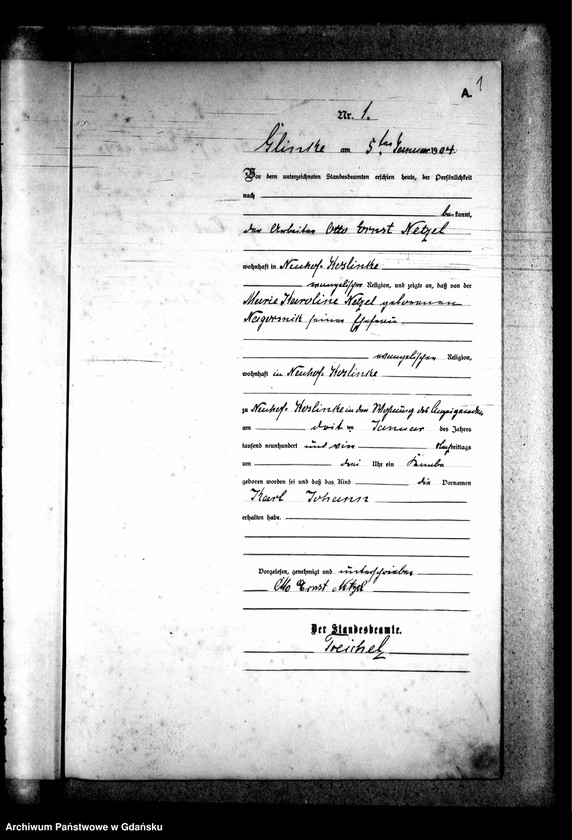 A. 1
Nr. 1.
Glinke am 5ten Januar 1904.
Vor dem unterzeichneten Standesbeamten erschien heute, der Persönlichkeit
nach
bekannt,
der Arbeiter Otto Ernst Netzel
wohnhaft in Neuhof
evangelischer Religion, und zeigte an, daß von der
Marie Karoline Netzel geborenen
seiner Ehefrau
evangelischer Religion,
wohnhaft in Neuhof
zu Neuhof in der Wohnung des Anzeigenden
am Januar des Jahres
tausend neunhundert und vier mittags
um drei Uhr ein Knabe
geboren worden sei und daß das Kind die Vornamen
Karl Johann
erhalten habe.
Vorgelesen, genehmigt und unterschrieben
Otto Ernst Netzel
Der Standesbeamte.
Treichel
Archiwum Państwowe w Gdańsku